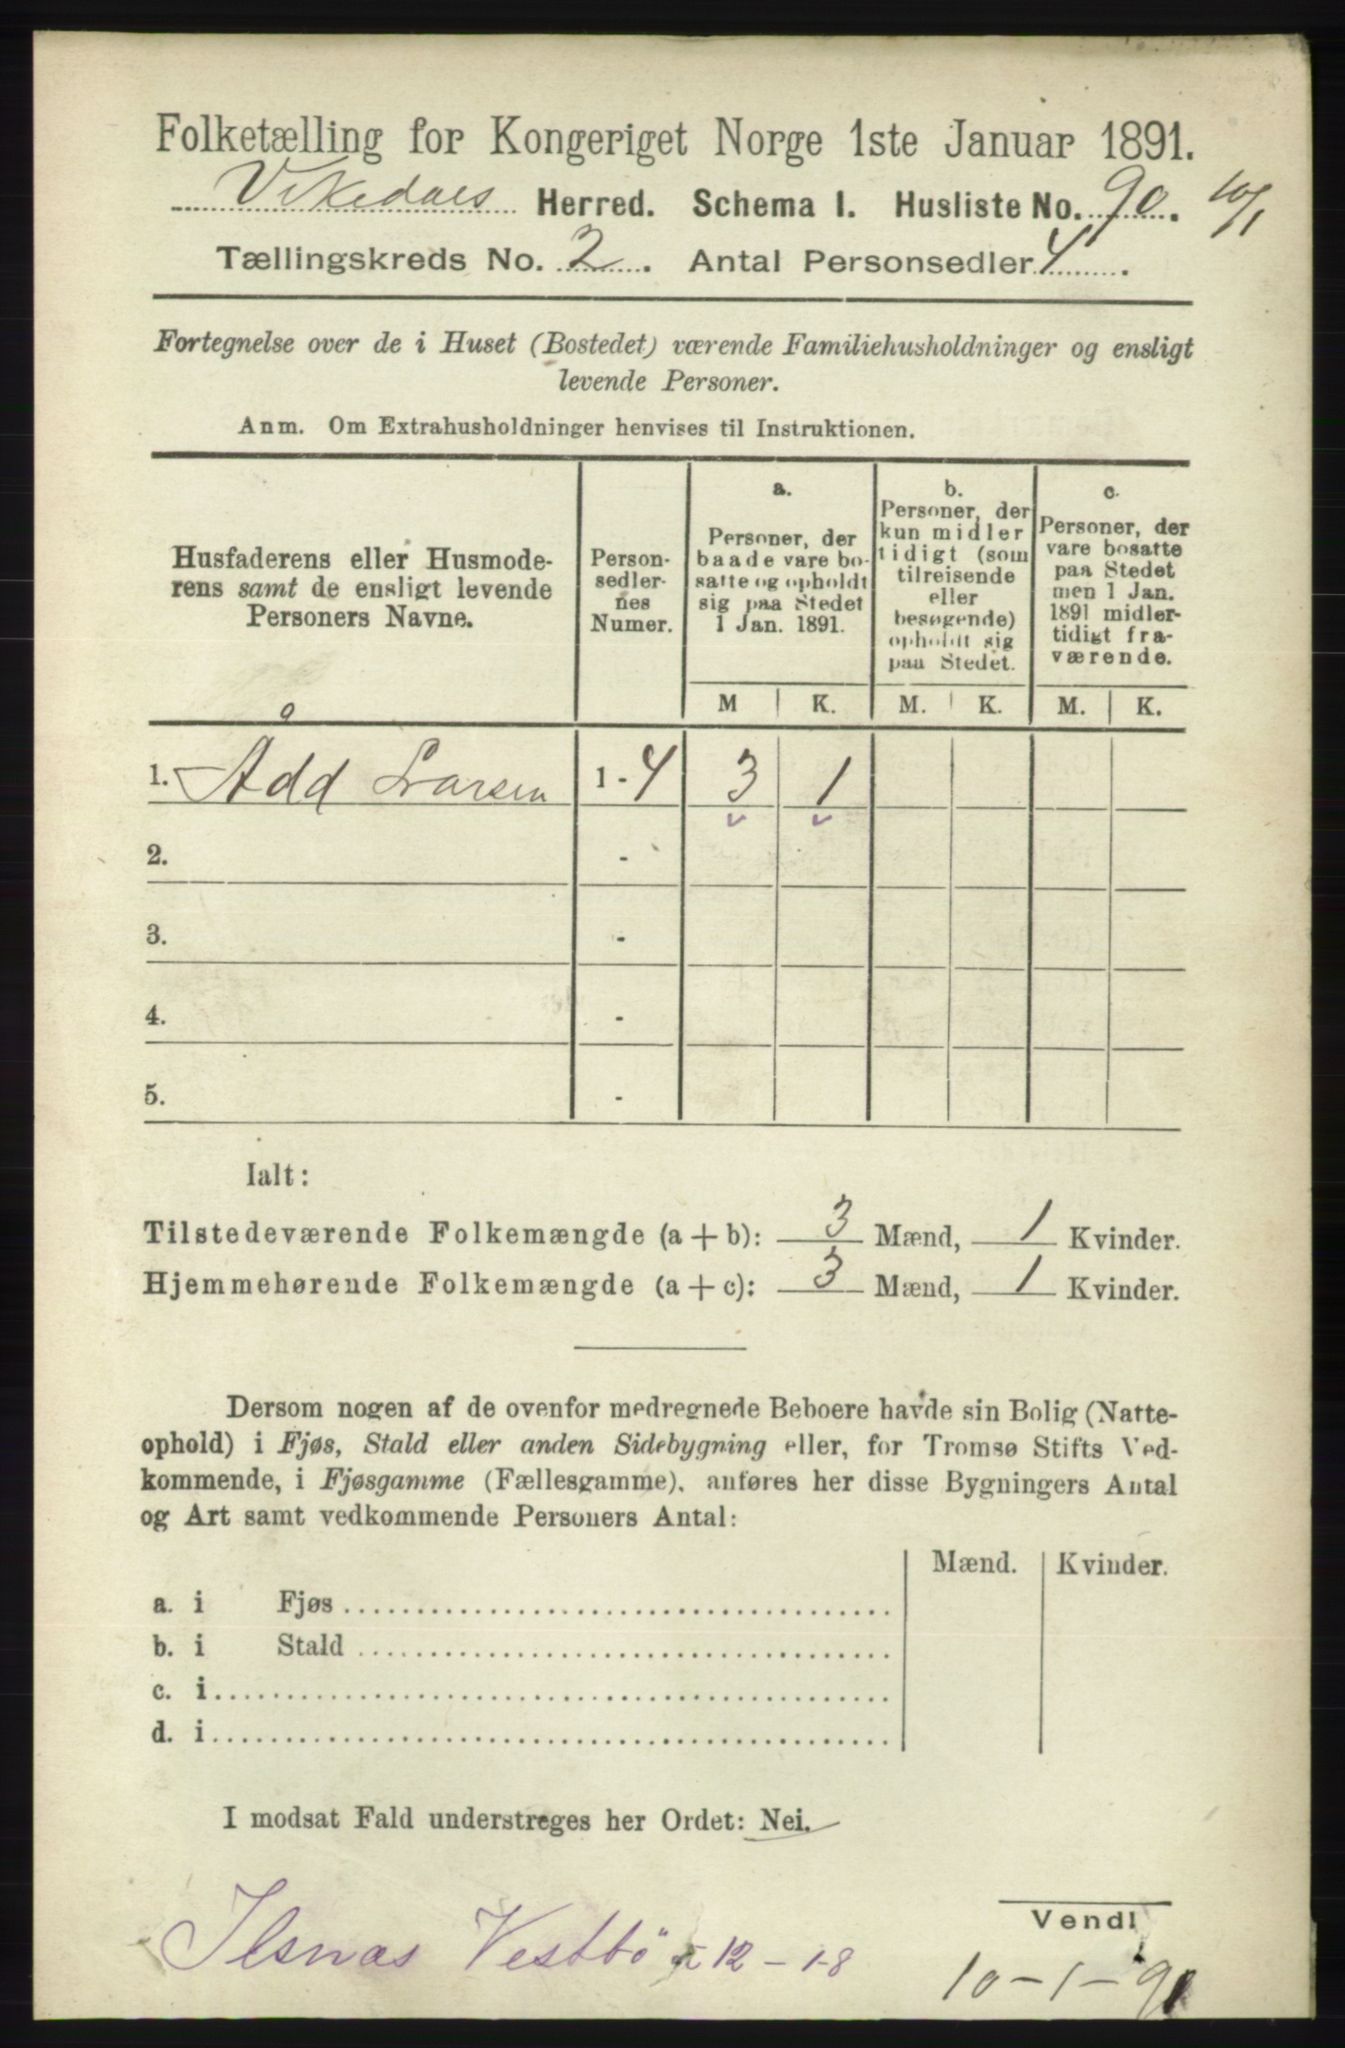 Folketælling for Kongeriget Norge 1ste Januar 1891.
Vikedals Herred. Schema I. Husliste No. 90. 10/1
Tællingskreds No. 2. Antal Personsedler 4.
Fortegnelse over de i Huset (Bostedet) værende Familiehusholdninger og ensligt
levende Personer.
Anm. Om Extrahusholdninger henvises til Instruktionen.
Husfaderens eller Husmode-
rens samt de ensligt levende
Personers Navne.
Person-
sedler-
nes
Numer.
a.
Personer, der
baade vare bo-
satte og opholdt
sig paa Stedet
1 Jan. 1891.
b.
Personer, der
kun midler
tidigt (som
tilreisende
eller
besøgende)
opholdt sig
paa Stedet.
c.
Personer, der
vare bosatte
paa Stedet
men 1 Jan.
1891 midler-
tidigt fra-
værende.
M K. M. K. M. K.
1.Ådd Larsen 1 - 4 3 1
2. -
3. -
4. -
5. -
Ialt:
Tilstedeværende Folkemængde (a + b): 3 Mænd, 1 Kvinder.
Hjemmehørende Folkemængde (a + c): 3 Mænd, 1 Kvinder.
Dersom nogen af de ovenfor medregnede Beboere havde sin Bolig (Natte-
ophold) i Fjøs, Stald eller anden Sidebygning eller, for Tromsø Stifts Ved-
kommende, i Fjøsgamme (Fællesgamme), anføres her disse Bygningers Antal
og Art samt vedkommende Personers Antal:
Mænd. Kvinder.
a. i Fjøs
b. i Stald
c. i
d. i
I modsat Fald understreges her Ordet: Nei.
Ilsnas Vestbö 12 - 18
Vend!
10 - 1 - 91